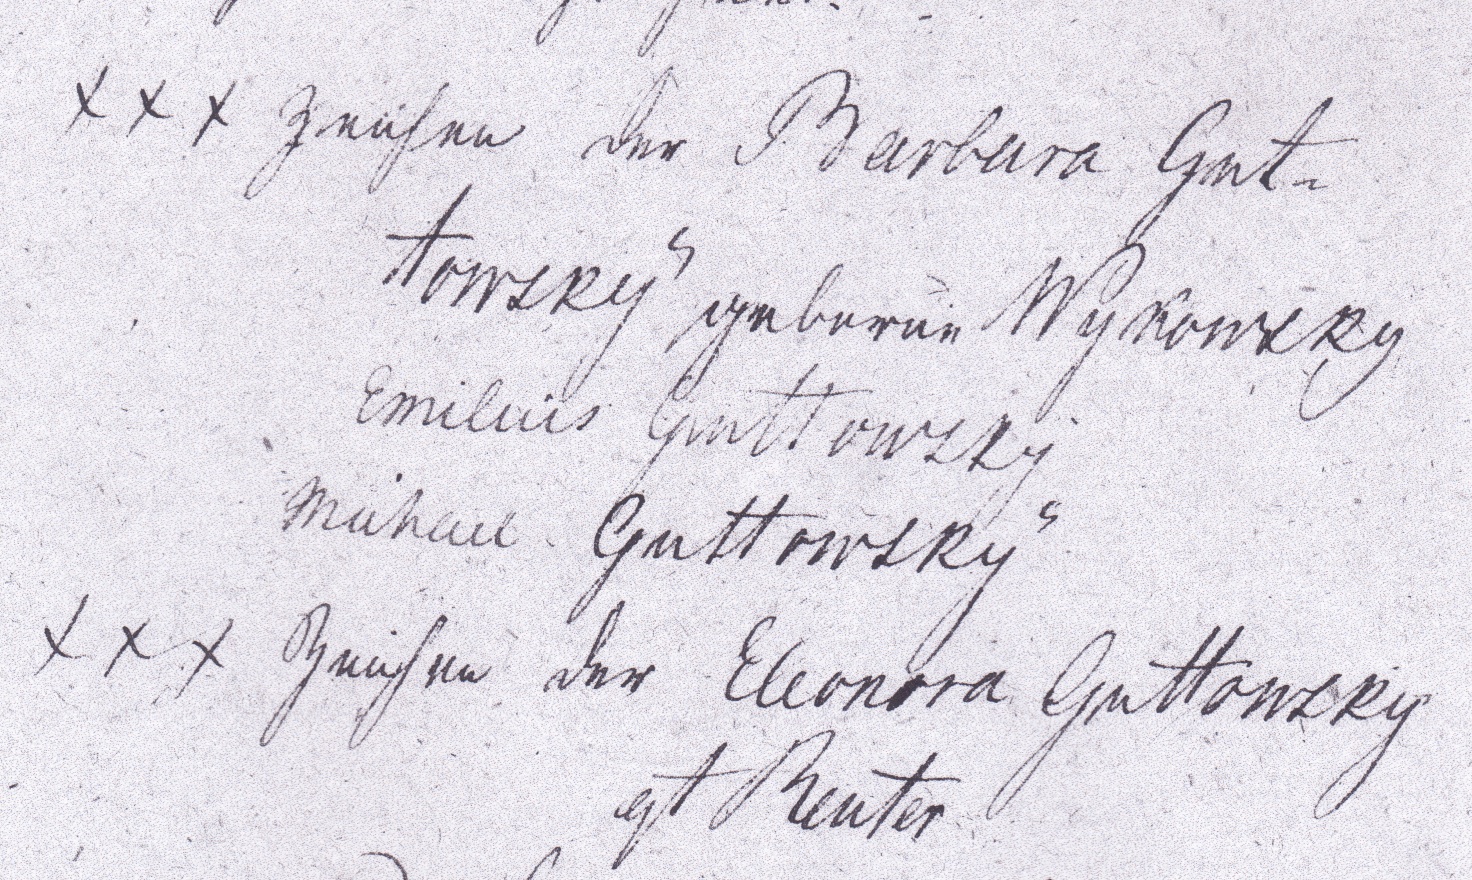 xxx Zeichen der Barbara Gut-
towsky geborne Wykowsky
Emilius Guttowsky
Michael Guttowsky
xxx Zeichen der Eleonora Guttowsky
gt Reuter